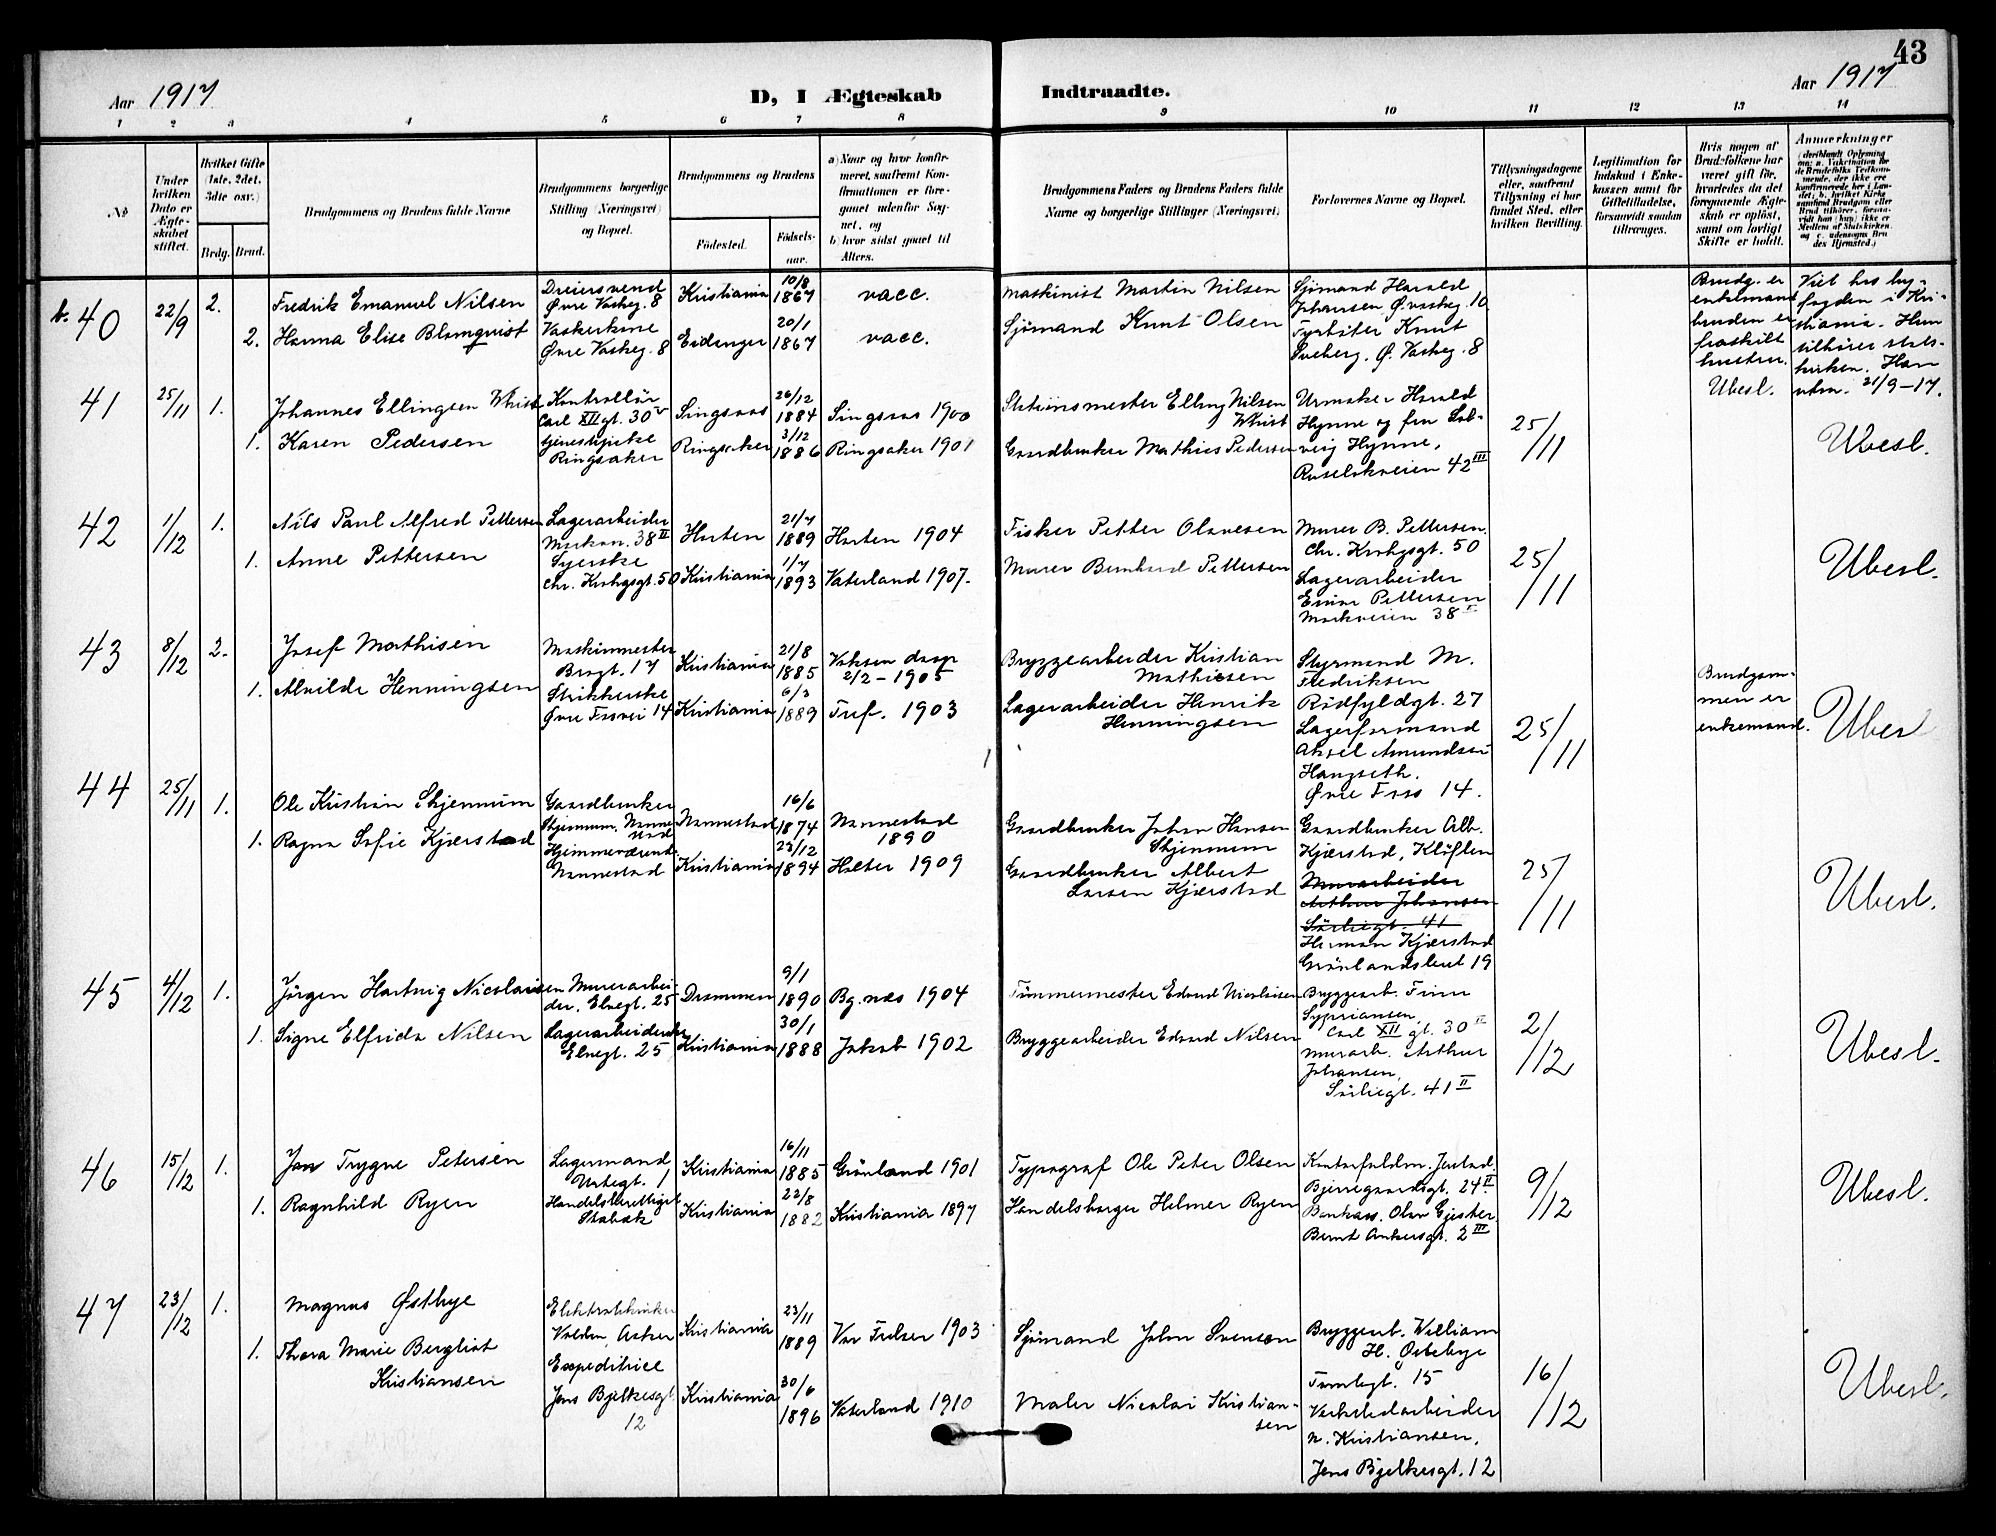 43
Aar 1917
D, I Ægteskab
Indtraadte.
Aar 1917
1 2 3 4 5 6 7 8 9 10 11 12 13 14
№
Under hvilken Dato er Ægteskabet stiftet.
Hvilket Gifte (1ste, 2det, 3dte osv.)
Brdg. Brud.
Brudgommens og Brudens fulde Navne
Brudgommens borgerlige Stilling (Næringsvei) og Bopæl.
Brudgommens og Brudens
Fødested.
Fødselsaar.
a) Naar og hvor konfirmeret, saafremt Konfirmationen er foregaaet udenfor Sognet, og
b) hvor sidst gaaet til Alters.
Brudgommens Faders og Brudens Faders fulde Navne og borgerlige Stillinger (Næringsvei)
Forlovernes Navne og Bopæl.
Tillysningsdagene eller, saafremt Tillysning ei har fundet Sted, efter hvilken Bevilling.
Legitimation for Indskud i Enkekassen samt for Giftetilladelse, forsaavidt saadan tiltrænges.
Hvis nogen af Brudefolkene har været gift før, hvorledes da det foregaaende Ægteskab er opløst, samt om lovligt Skifte er holdt.
Anmærkninger
b. 40
22/9
2.
Fredrik Emanuel Nilsen
Dreiersvend
Øvre Vaskeg. 8
Kristiania
10/8
1867
vacc.
Maskinist Martin Nilsen
Sjømand Harald
Johansen Ø. Vaskeg. 10
2. Hanna Elise Blomquist
Vaskerkone
Øvre Vaskeg. 8
Eidanger
20/1
1867
vacc.
Sjømand Knut Olsen
Fyrbøter Knut
Sveberg, Ø. Vaskeg. 8
Brudg. er
enkemand
bruden er
fraskilt
hustru.
Ubesl.
Viet hos by-
fogden i Kri-
stiania. Hun
tilhører stats-
kirken. Han
utm. 21/9-17.
41
25/11
1.
Johannes Ellingsen Whist
Kontrollør
Carl XII gt. 30 V
Singsaas
26/12
1884
Singsaas 1900
Stationsmester Elling Nilsen
Whist
Urmaker Harald
Hynne og fru Sol-
veig Hynne,
Ruseløkveien 42 III
25/11
Ubesl.
1. Karen Pedersen
Ringsaker
Ringsaker
3/12
1886
Ringsaker 1901
Gaardbruker Mathies Pedersen
42
1/12
1.
Nils Paul Alfred Pettersen
Lagerarbeider
Markvn. 38 II
Horten
21/7
1889
Horten 1904
Fisker Petter Olavesen
Murer B. Pettersen.
Chr. Krohgsgt. 50
1. Anne Pettersen
Syerske
Chr. Krohgsgt. 50
Kristiania
1/7
1893
Vaterland 1907.
Murer Bernhard Pettersen
Lagerarbeider
Einar Pettersen
Markveien 38 I
25/11
Ubesl.
43
8/12
2.
Josef Mathisen
Maskinmester
Brugt. 17
Kristiania
21/8
1885
Voksen daap
2/2 - 1905
Bryggearbeider Kristian
Mathiesen
Styrmand M.
Fredriksen
Rødfyldgt. 27
1. Alvilde Henningsen
Strikkerske
Øvre Fossvei 14
Kristiania
6/3
1889
Tref. 1903
Lagerarbeider Henrik
Henningsen
Lagerformand
Aksel Amundsen
Haugseth.
Øvre Foss 14.
25/11
Brudgom-
men er
enkemand.
Ubesl
44
25/11
1.
Ole Kristian Skjennum
Gaardbruker
Skjennum, Nanne-
stad
Nannestad
16/6
1874
Nannestad
1890
Gaardbruker Johan Hansen
Skjennum
Gaardbruker Alb.
Kjærstad, Kløften
1. Ragna Sofie Kjærstad
Hjemmeværende
Nannestad
Kristiania
23/12
1894
Holter 1909
Gaardbruker Albert
Larsen Kjærstad
Murarbeider
Arthur Johansen
Sørliegt. 41
Herman Kjærstad
Grønlandsleret 19
25/11
Ubesl.
45
4/12
1.
Jørgen Hartvig Nicolaisen
Murerarbei-
der, Elvegt. 25
Drammen
9/1
1890
Bg.nes 1904
Tømmermester Edvard Nicolaisen
Bryggearb. Finn
Sypriansen,
Carl XII gt. 30 II
1. Signe Elfrida Nilsen
Lagerarbeiderske
Elvegt. 25
Kristiania
30/1
1888
Jakob 1902
Bryggearbeider Edvard Nilsen
Murarb. Arthur
Johansen,
Sørliegt. 41 II
2/12
Ubesl.
46
15/12
1.
Jon Trygve Petersen
Lagermand
Urtegt. 1
Kristiania
16/11
1885
Grønland 1901
Typograf Ole Peter Olsen
Bjerregaardsgt. 24 II
1. Ragnhild Ryen
Handelsberettiget
Stabæk
Kristiania
22/8
1882
Kristiania 1897
Handelsborger Helmer Ryen
Bankass. Olav Gjester
Bernt Ankersgt. 2 III
9/12
Ubesl.
47
23/12
1.
Magnus Østbye
Elektrotekniker
Volden, Asker
Kristiania
23/11
1889
Vor Frelser 1903
Sjømand John Svensen
Bryggearb. William
H. Østebye
Tromsøgt. 15
1. Thora Marie Bergliot
Kristiansen
Expeditrice
Jens Bjelkesgt.
12
Kristiania
30/6
1896
Vaterland 1910
Maler Nicolai Kristian-
sen
Verkstedarbeider
N. Kristiansen,
Jens Bjelkesgt. 12
16/12
Ubesl.